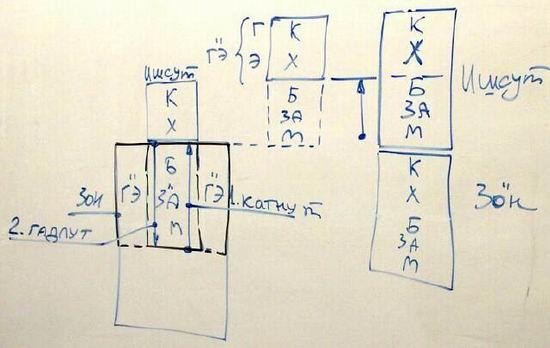 ишсут
К
Х
Б
ЗА
М
ГЭ
ГЭ
ЗОН
1. КАТНУТ
2. ГАДЛУТ
ГЭ
Г
Э
К
Х
Б
ЗА
М
К
Х
Б
ЗА
М
Ишсут
К
Х
Б
ЗА
М
ЗОН